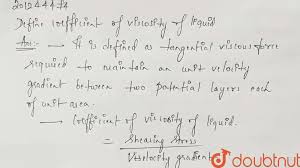 2012 44474
Define coefficient of viscosity of liquid
Ans:- → It is defined as tangential viscous force
required to maintain an unit velocity
gradient between two potential layers each
of unit area.
→ Coefficient of viscosity of liquid.
= Shearing stress
Velocity gradient
doubtnut